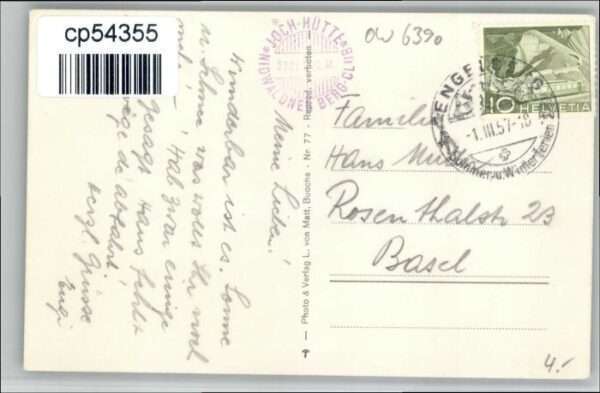 cp54355
JOCH-HÜTTE
NIDWALDNER BERG-CLUB
OW 6390
HELVETIA
10
ENGELBERG
-1.III.57-18
Sommer u. Winterferien
Meine Lieben!
Wunderbar ist es. Sonne
u. Schnee was wollt Ihr noch
Hab zwar einige
gesagt Hans fehlt
de abfahrt!
Herzl. Grüsse
Familie
Hans
Rosenthalstr 23
Basel
Photo & Verlag L. von Matt, Buochs - Nr. 77 - Reprod. verboten.
4.-